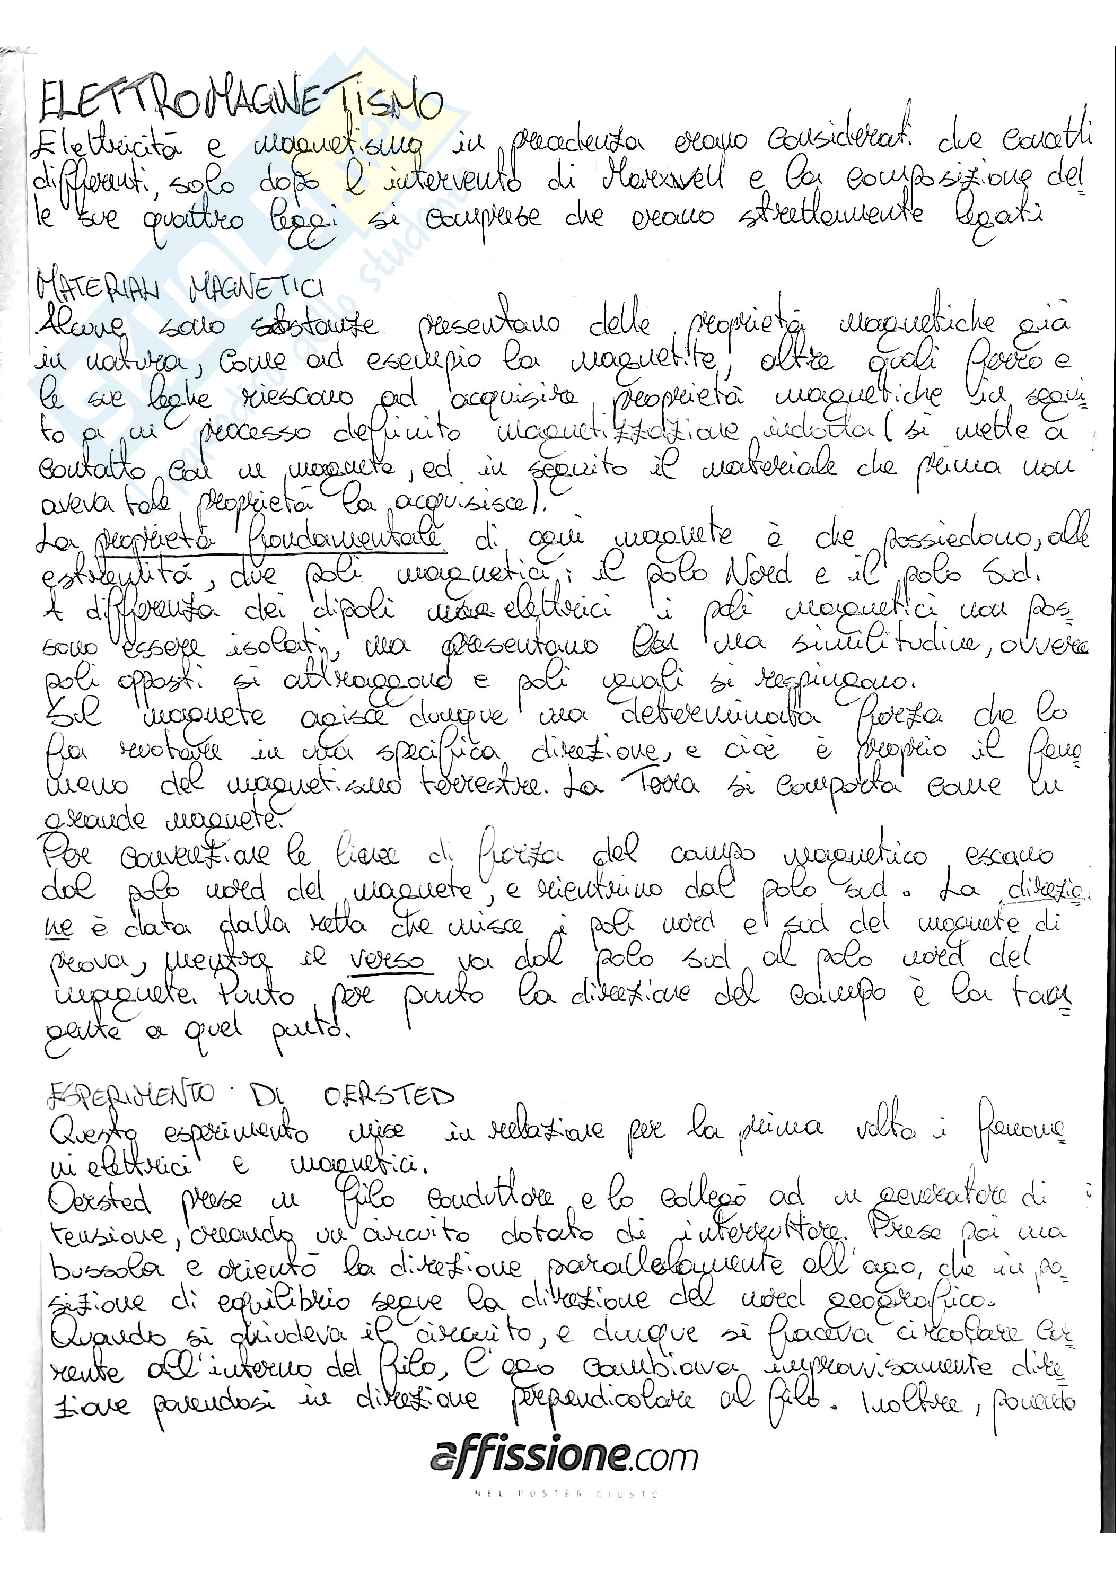 ELETTROMAGNETISMO
Elettricità e magnetismo in precedenza erano considerati due concetti
differenti, solo dopo l'intervento di Marxwell e la composizione del=
le sue quattro leggi si comprese che erano strettamente legati
MATERIALI MAGNETICI
Alcune sono sostanze presentano delle proprietà magnetiche già
in natura, come ad esempio la magnetite, altre quali ferro e
le sue leghe riescono ad acquisire proprietà magnetiche in segui=
to a un processo definito magnetizzazione indotta (si mette a
contatto con un magnete, ed in seguito il materiale che prima non
aveva tale proprietà la acquisisce).
La proprietà fondamentale di ogni magnete è che possiedono, alle
estremità, due poli magnetici: il polo Nord e il polo Sud.
A differenza dei dipoli elettrici i poli magnetici non pos=
sono essere isolati, ma presentano una similitudine, ovvero
poli opposti si attraggono e poli uguali si respingono.
Sul magnete agisce dunque una determinata forza che lo
fa ruotare in una specifica direzione, e ciò è proprio il feno=
meno del magnetismo terrestre. La Terra si comporta come un
grande magnete.
Per convenzione le linee di forza del campo magnetico escono
dal polo nord del magnete, e rientrino dal polo sud. La direzio=
ne è data dalla retta che unisce i poli nord e sud del magnete di
prova, mentre il verso va dal polo sud al polo nord del
magnete. Punto per punto la direzione del campo è la tan=
gente a quel punto.
ESPERIMENTO DI OERSTED
Questo esperimento mise in relazione per la prima volta i fenome
ni elettrici e magnetici.
Oersted prese un filo conduttore e lo collegò ad un generatore di
tensione, creando un circuito dotato di interruttore. Prese poi una
bussola e orientò la direzione parallelamente all'ago, che in po=
sizione di equilibrio segue la direzione del nord geografico.
Quando si chiudeva il circuito, e dunque si faceva circolare cor=
rente all'interno del filo, l'ago cambiava improvvisamente dire=
zione ponendosi in direzione perpendicolare al filo. Inoltre, ponendo
affissione.com
NEL POSTER GIUSTO